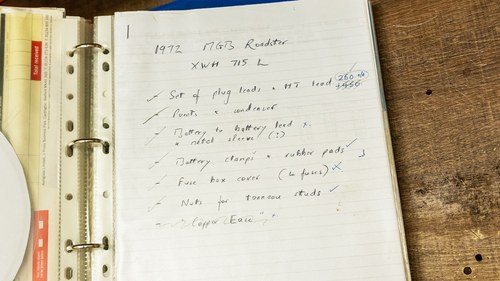 1
1972 MGB Roadster
XWH 715 L
Set of plug leads + HT lead
Points + condenser
Battery to battery lead
Battery clamps + rubber pads ✓
Fuse box cover (4 fuses) X
Nuts for tonneau studs ✓
Copper Ease